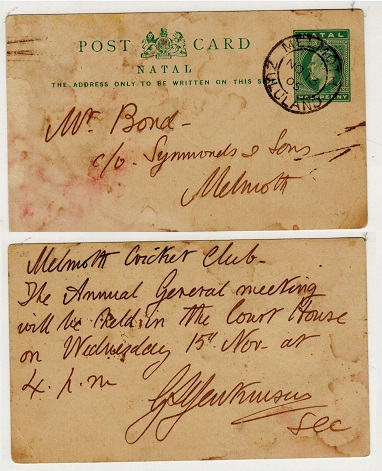 POST CARD
NATAL
THE ADDRESS ONLY TO BE WRITTEN ON THIS SIDE
NATAL
PENNY
MELMOTH
NO
ZULULAND
Mr. Bond -
c/o. Symmonds & Sons
Melmoth
Melmoth Cricket Club -
The Annual General meeting
will be held in the Court House
on Wednesday 15th Nov. at
4. p.m
Sec